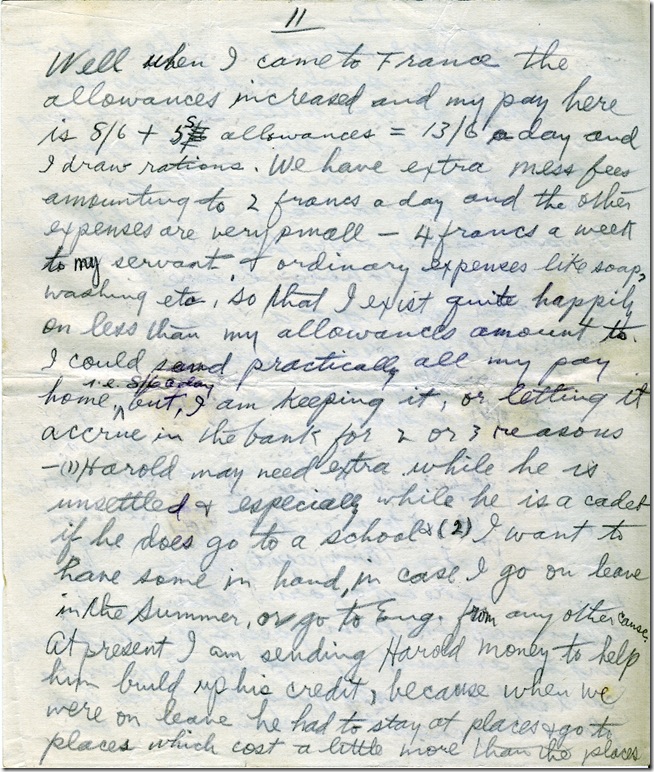 11
Well when I came to France the
allowances increased and my pay here
is 8/6 + 5s allowances = 13/6 a day and
I draw rations. We have extra mess fees
amounting to 2 francs a day and the other
expenses are very small – 4 francs a week
to my servant & ordinary expenses like soap,
washing etc, so that I exist quite happily
on less than my allowances amount to.
I could send practically all my pay
i.e. 8/6 a day
home, but, I am keeping it, or letting it
accrue in the bank for 2 or 3 reasons
– (1) Harold may need extra while he is
unsettled & especially while he is a cadet
if he does go to a school & (2) I want to
have some in hand, in case I go on leave
in the Summer, or go to Eng. from any other cause.
At present I am sending Harold money to help
him build up his credit, because when we
were on leave he had to stay at places & go to
places which cost a little more than the places